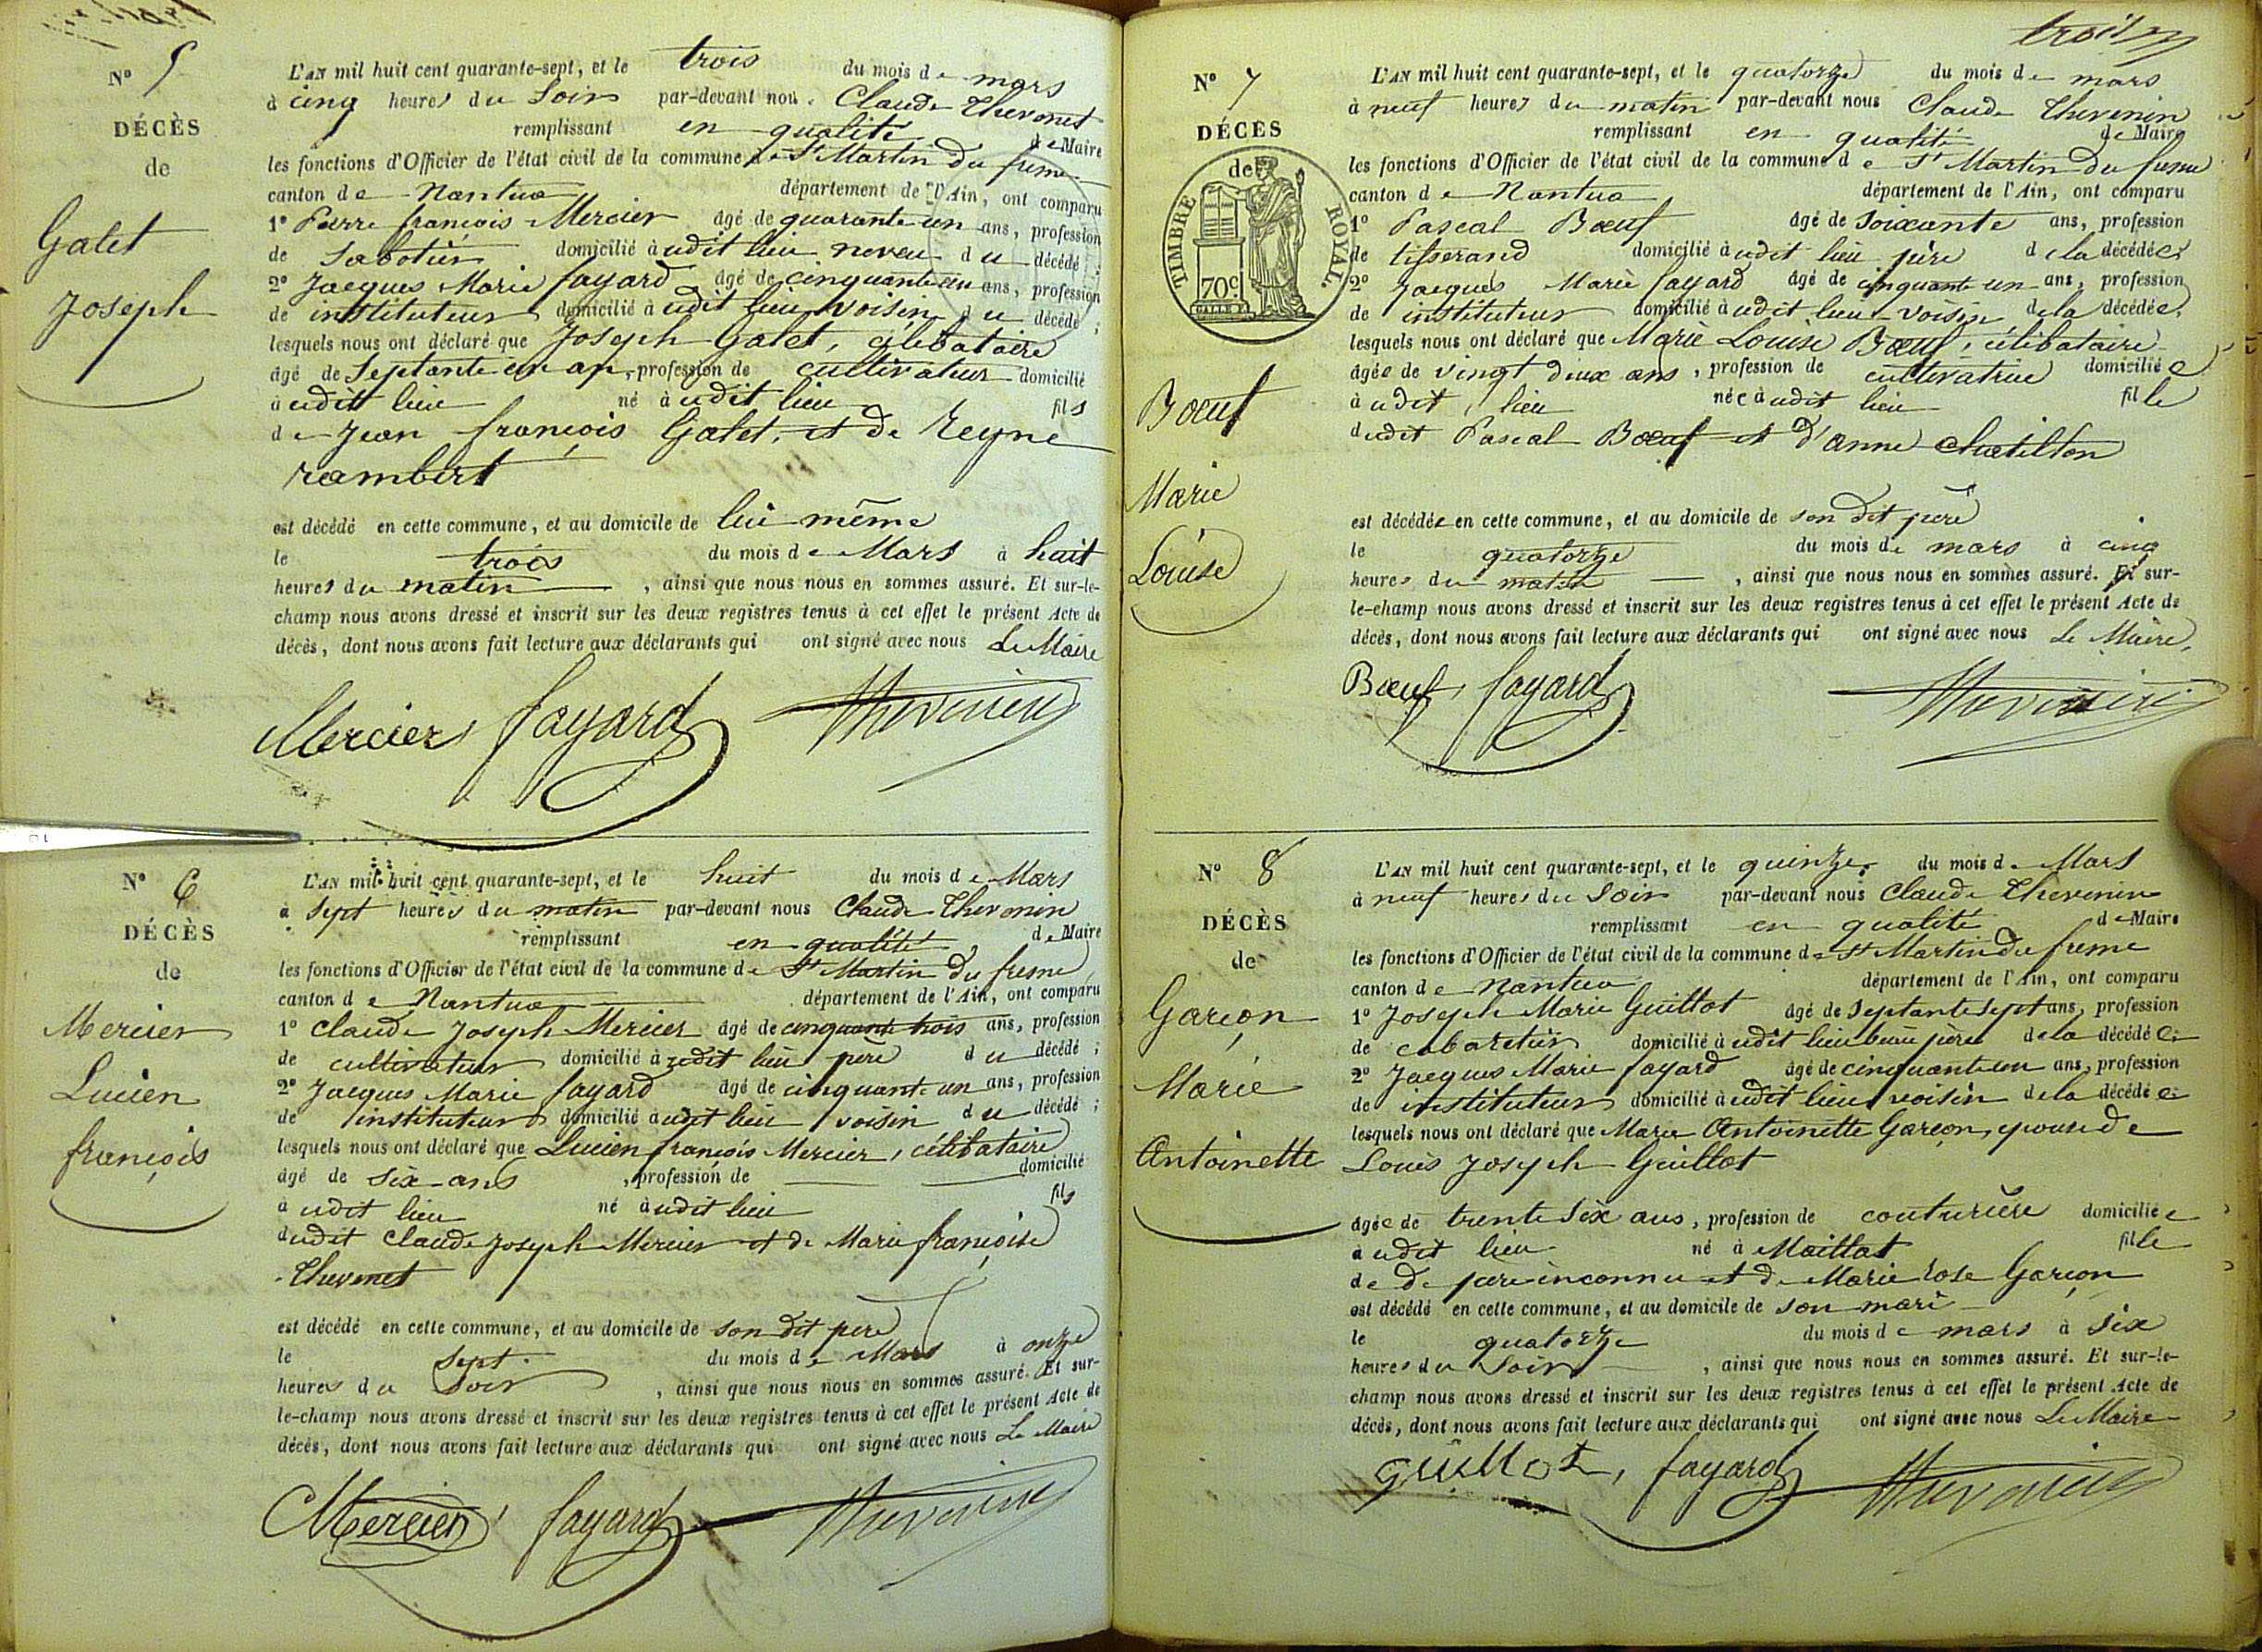 Nº 5
DÉCÈS
de
Galet
Joseph
L'AN mil huit cent quarante-sept, et le trois du mois de mars
à cinq heures du Soir par-devant nous Claude Thevenet
remplissant en qualité de Maire
les fonctions d'Officier de l'état civil de la commune de St Martin du fresne
canton de Nantua département de l'Ain, ont comparu
1º Pierre françois Mercier âgé de quarante un ans, profession
de Sabotier domicilié à udit lieu neveu du décédé ;
2º Jacques Marie fayard âgé de cinquante un ans, profession
de instituteur domicilié à udit lieu voisin du décédé ;
lesquels nous ont déclaré que Joseph Galet, célibataire
âgé de Septante un an, profession de cultivateur domicilié
à udit lieu né à udit lieu fils
de Jean françois Galet, et de Reyne
rambert
est décédé en cette commune, et au domicile de lui même
le trois du mois de Mars à huit
heures du matin , ainsi que nous nous en sommes assuré. Et sur-le-
champ nous avons dressé et inscrit sur les deux registres tenus à cet effet le présent Acte de
décès, dont nous avons fait lecture aux déclarants qui ont signé avec nous Le Maire
Mercier fayard Thevenin
Nº 6
DÉCÈS
de
Mercier
Lucien
françois
L'AN mil huit cent quarante-sept, et le huit du mois de Mars
à Sept heures du matin par-devant nous Claude Thevenin
remplissant en qualité de Maire
les fonctions d'Officier de l'état civil de la commune de St Martin du fresne
canton de Nantua département de l'Ain, ont comparu
1º Claude Joseph Mercier âgé de cinquante trois ans, profession
de cultivateur domicilié à udit lieu père du décédé ;
2º Jacques Marie fayard âgé de cinquante un ans, profession
de instituteur domicilié à udit lieu voisin du décédé ;
lesquels nous ont déclaré que Lucien françois Mercier, célibataire
âgé de Six ans , profession de domicilié
à udit lieu né à udit lieu fils
dudit Claude Joseph Mercier et de Marie françoise
Thevenet
est décédé en cette commune, et au domicile de son dit père
le Sept du mois de Mars à onze
heures du Soir , ainsi que nous nous en sommes assuré. Et sur-
le-champ nous avons dressé et inscrit sur les deux registres tenus à cet effet le présent Acte de
décès, dont nous avons fait lecture aux déclarants qui ont signé avec nous Le Maire
Mercier fayard Thevenin
trois
Nº 7
DÉCÈS
de
TIMBRE ROYAL.
70c.
Bœuf
Marie
Louise
L'AN mil huit cent quarante-sept, et le quatorze du mois de mars
à neuf heures du matin par-devant nous Claude Thevenin
remplissant en qualité de Maire
les fonctions d'Officier de l'état civil de la commune de St Martin du fresne
canton de Nantua département de l'Ain, ont comparu
1º Pascal Bœuf âgé de Soixante ans, profession
de tisserand domicilié à udit lieu père de la décédée ;
2º Jacques Marie fayard âgé de cinquante un ans, profession
de instituteur domicilié à udit lieu voisin de la décédée ;
lesquels nous ont déclaré que Marie Louise Bœuf, célibataire
âgée de vingt deux ans , profession de cultivatrice domiciliée
à udit lieu née à udit lieu fille
dudit Pascal Bœuf et d'anne chatillon
est décédée en cette commune, et au domicile de son dit père
le quatorze du mois de mars à cinq
heures du matin , ainsi que nous nous en sommes assuré. Et sur-
le-champ nous avons dressé et inscrit sur les deux registres tenus à cet effet le présent Acte de
décès, dont nous avons fait lecture aux déclarants qui ont signé avec nous Le Maire,
Bœuf, fayard Thevenin
Nº 8
DÉCÈS
de
Garçon
Marie
Antoinette
L'AN mil huit cent quarante-sept, et le quinze du mois de Mars
à neuf heures du Soir par-devant nous Claude Thevenin
remplissant en qualité de Maire
les fonctions d'Officier de l'état civil de la commune de St Martin du fresne
canton de Nantua département de l'Ain, ont comparu
1º Joseph Marie Guillot âgé de Septante Sept ans, profession
de cabaretier domicilié à udit lieu beau père de la décédée ;
2º Jacques Marie fayard âgé de cinquante un ans, profession
de instituteur domicilié à udit lieu voisin de la décédée ;
lesquels nous ont déclaré que Marie Antoinette Garçon, epouse de
Louis Joseph Guillot
âgée de trente Six ans , profession de couturière domiciliée
à udit lieu né à Maillat fille
de de père inconnu et de Marie rose Garçon
est décédé en cette commune, et au domicile de son mari
le quatorze du mois de mars à Six
heures du Soir , ainsi que nous nous en sommes assuré. Et sur-le-
champ nous avons dressé et inscrit sur les deux registres tenus à cet effet le présent Acte de
décès, dont nous avons fait lecture aux déclarants qui ont signé avec nous Le Maire
Guillot, fayard Thevenin